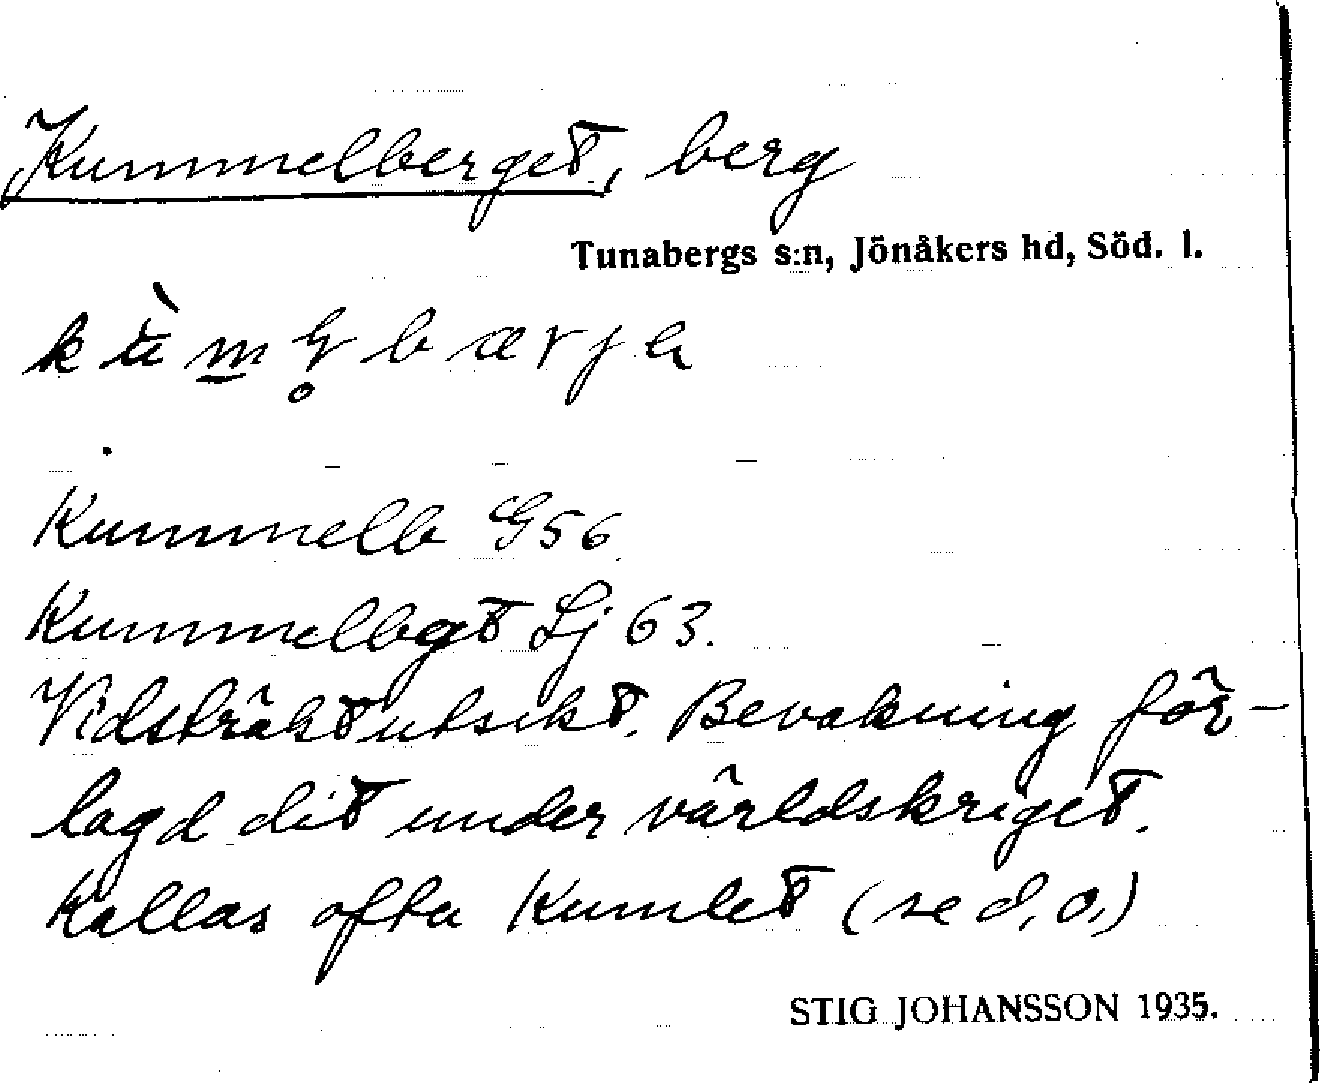 Kummelberget, berg
Tunabergs s:n, Jönåkers hd, Söd. l.
Kummelb G56
Kummelbgt Lj 63.
Vidsträkt utsikt. Bevakning för-
lagd dit under världskriget.
Kallas ofta Kumlet (se d.o.)
STIG JOHANSSON 1935.